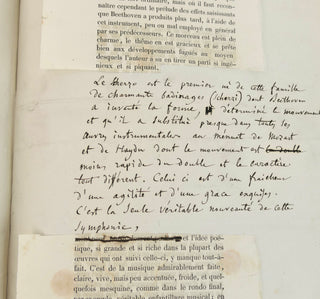 cependant le prélude des effets saisissants
que Beethoven a produits plus tard, à l'aide de
cet instrument, peu ou mal employé en général
par ses prédecesseurs. Ce morceau est plein de
charme, le thème en est gracieux et se prête
bien aux développements fugués au moyen
desquels l'auteur a su en tirer un parti si ingé-
nieux et si piquant.
Le scherzo est le premier né de cette famille
de charmants badinages (scherzi) dont Beethoven
a inventé la forme, determiné le mouvement
et qu'il a substitué presque dans toutes les
œuvres instrumentales au menuet de Mozart
et de Haydn dont le mouvement est le double
moins rapide du double et le caractère
tout différent. Celui ci est d'une fraicheur
d'une agilité et d'une grace exquises.
C'est la seule véritable nouveauté de cette
Symphonie,
et l'idée poé-
tique, si grande et si riche dans la plupart des
œuvres qui ont suivi celle-ci, y manque tout-à-
fait. C'est de la musique admirablement faite,
claire, vive, mais peu accentuée, froide, et quel-
quefois mesquine, comme dans le rondo final,
par exemple, véritable enfantillage musical; en